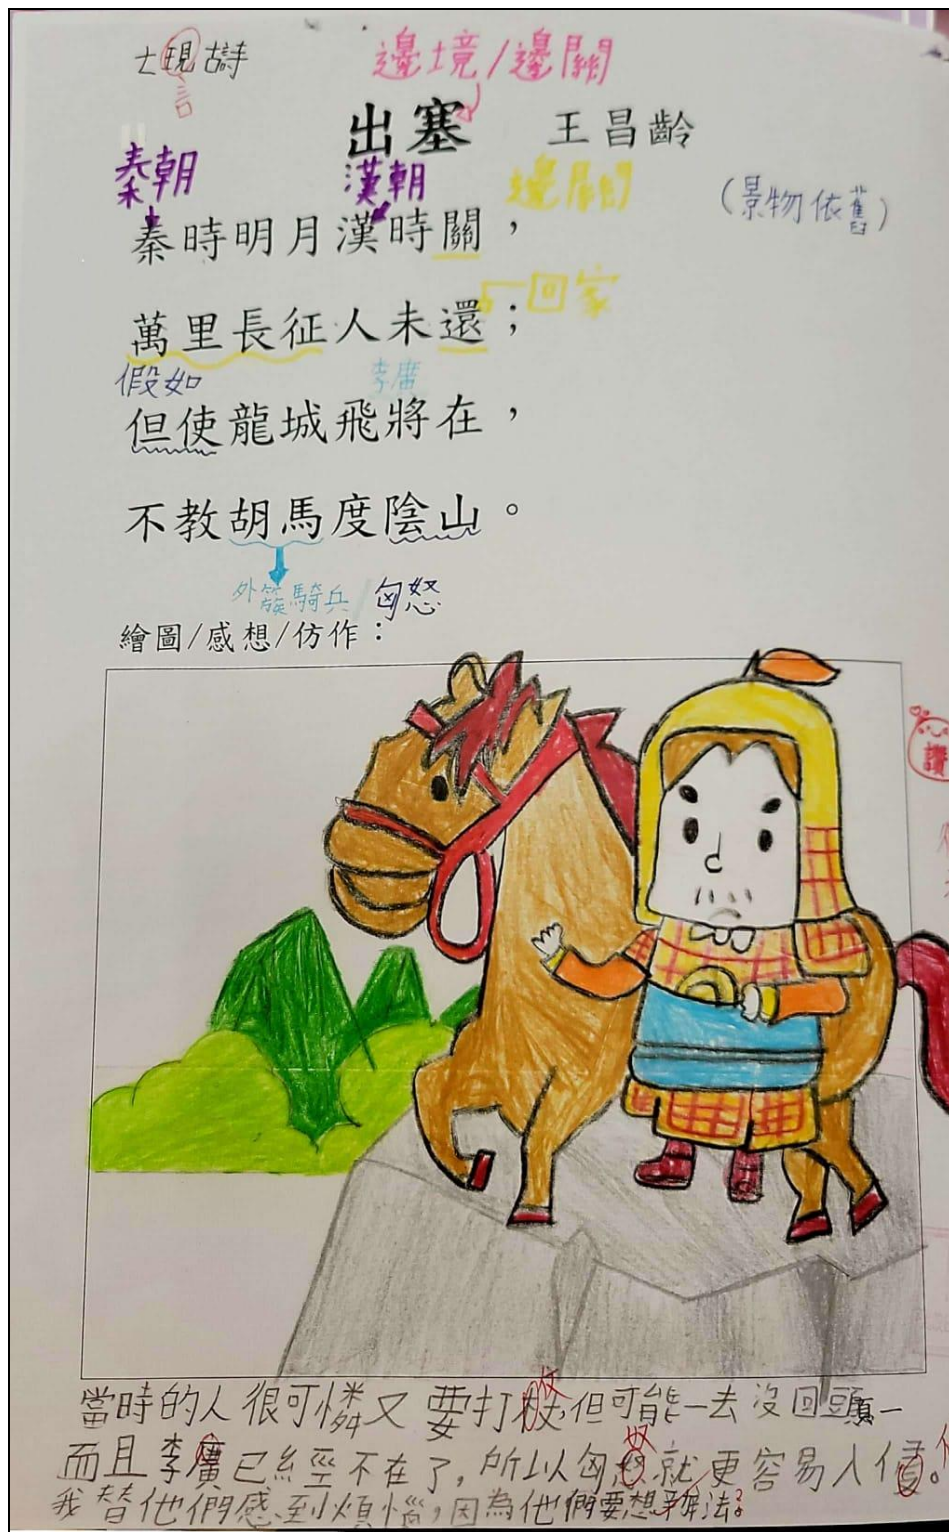 七現古詩
言
邊境/邊關
出塞 王昌齡
秦朝 漢朝 邊關
(景物依舊)
秦時明月漢時關，
回家
萬里長征人未還；
假如 李廣
但使龍城飛將在，
不教胡馬度陰山。
外簇騎兵/匈怒
繪圖/感想/仿作：
讚
當時的人很可憐又要打 但可能一去沒回頭
而且李廣已經不在了，所以匈 就更容易入侵。
我替他們感到煩惱，因為他們要想辦法。